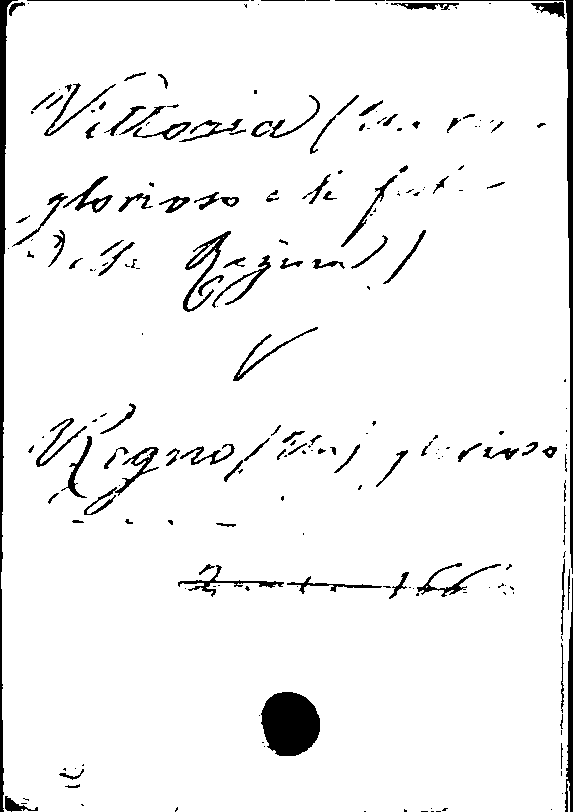 Vittoria (Un re
glorioso e le feste
Della Regina)
V
Regno (Un) glorioso